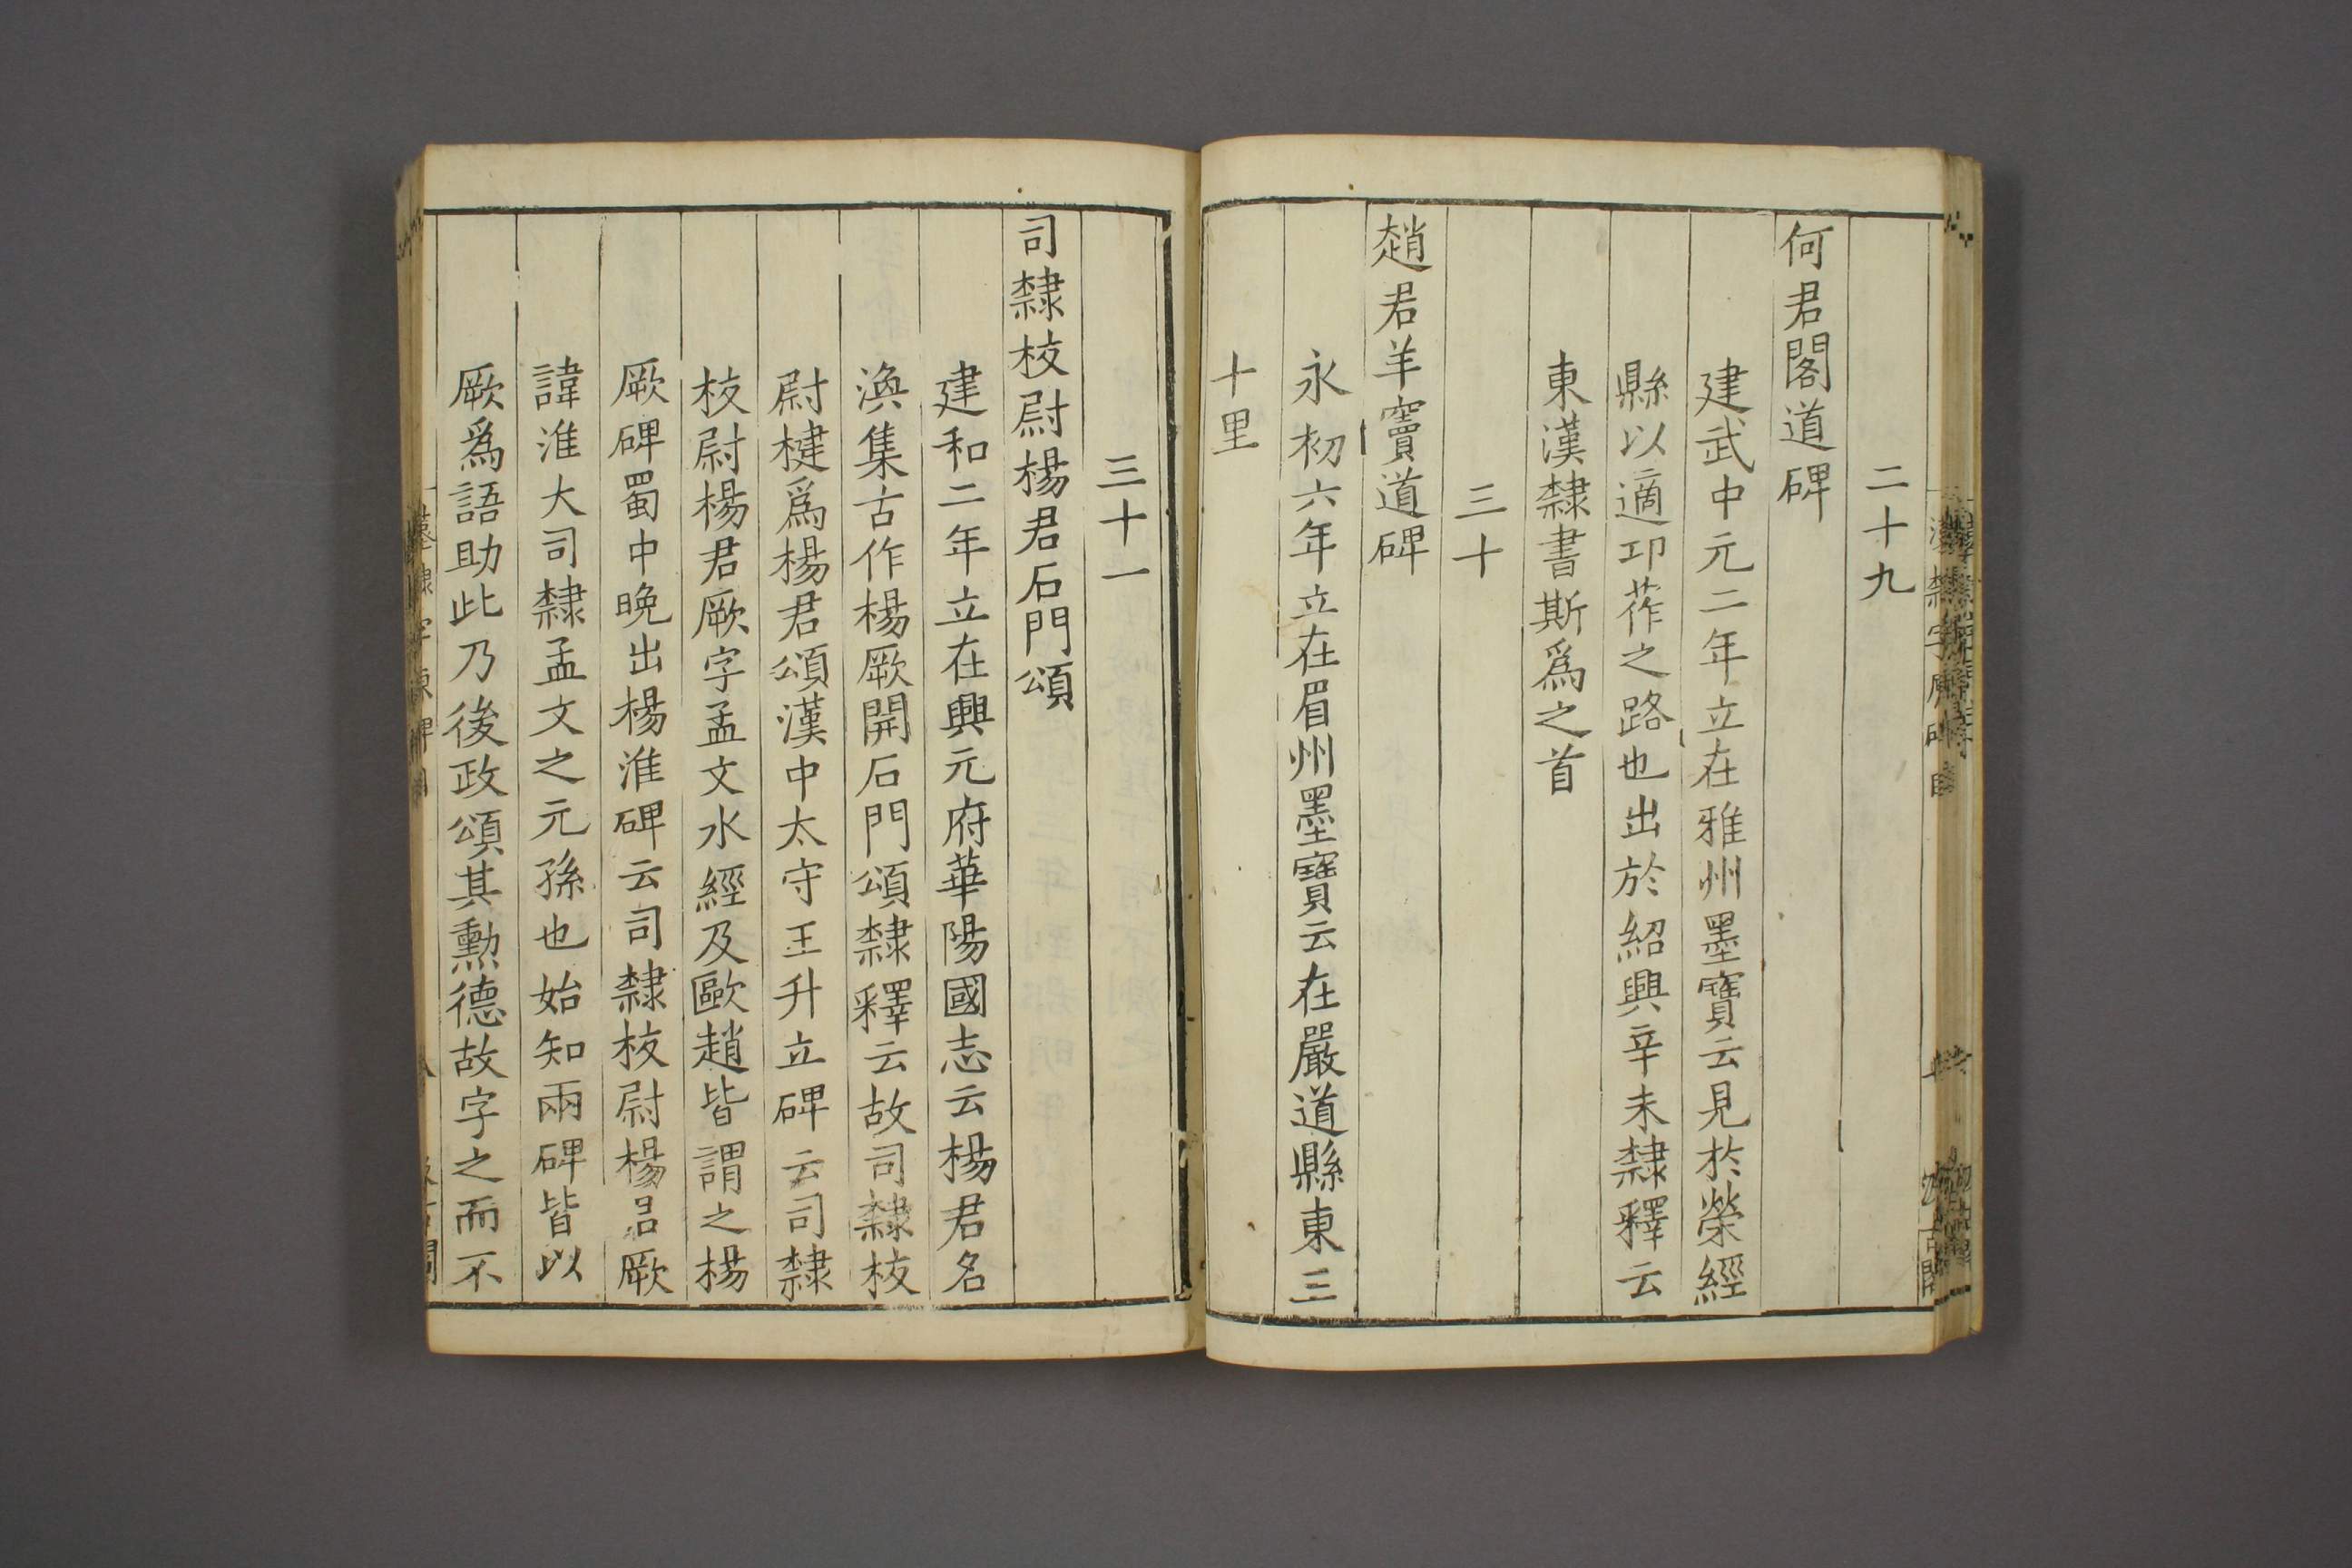 二十九
何君閣道碑
建武中元二年立在雅州墨寶云見於榮經
縣以適卭莋之路也出於紹興辛未隸釋云
東漢隸書斯爲之首
三十
趙君羊竇道碑
永初六年立在眉州墨寶云在嚴道縣東三
十里
三十一
司隸校尉楊君石門頌
建和二年立在興元府華陽國志云楊君名
渙集古作楊厥開石門頌隸釋云故司隸校
尉楗爲楊君頌漢中太守王升立碑云司隸
校尉楊君厥字孟文水經及歐趙皆謂之楊
厥碑蜀中晚出楊淮碑云司隸校尉楊君厥
諱淮大司隸孟文之元孫也始知兩碑皆以
厥爲語助此乃後政頌其勳德故字之而不